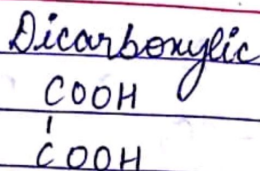 Dicarboxylic
COOH
COOH